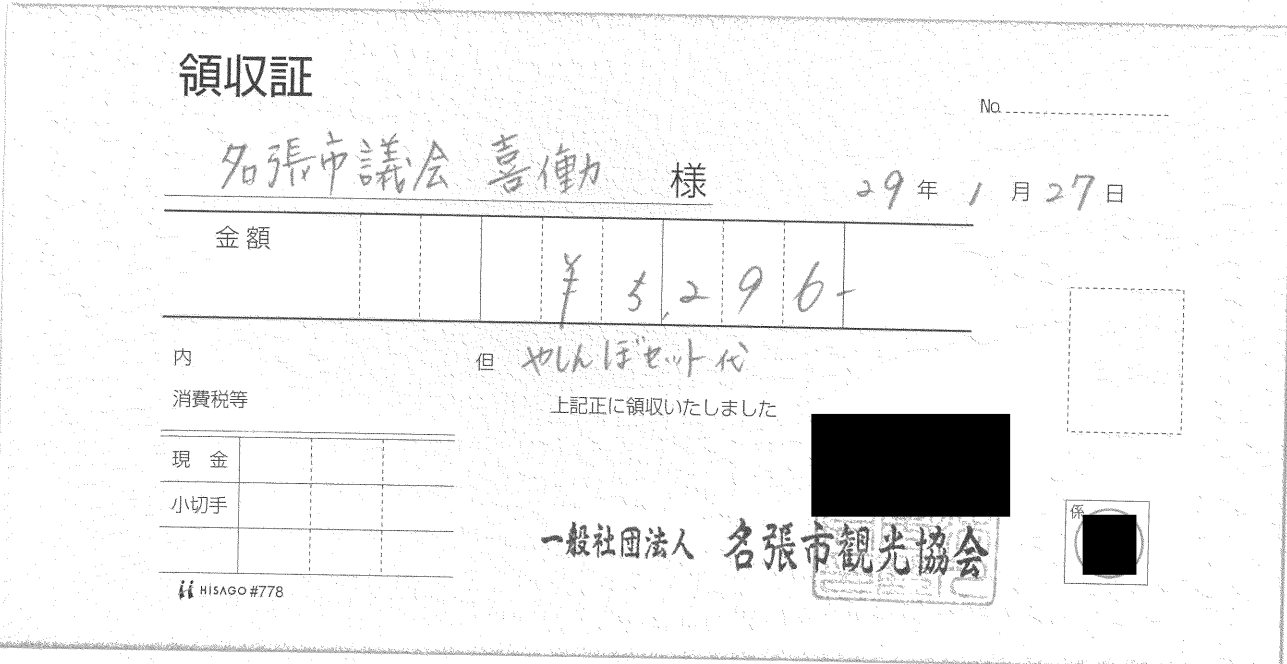 領収証
No.
名張市議会 喜働 様
29年1月27日
金額 ¥5,296-
内
但 やしんぼセット代
消費税等
上記正に領収いたしました
現 金
小切手
係
一般社団法人 名張市観光協会
HISAGO #778